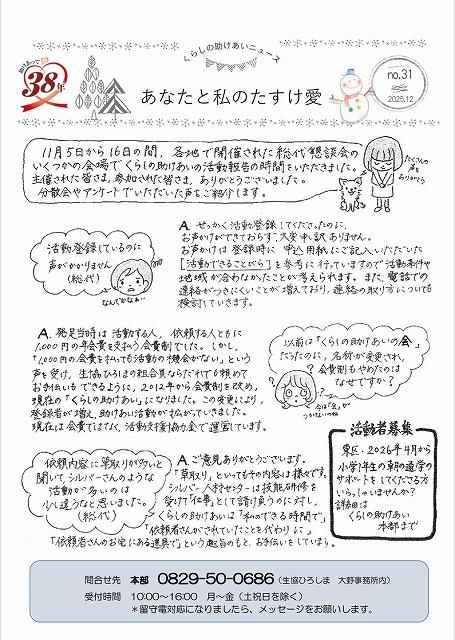 くらしの助けあいニュース
助けあって
38年
あなたと私のたすけ愛
no.31
2025.12
11月5日から16日の間、各地で開催された総代懇談会の
いくつかの会場でくらしの助けあいの活動報告の時間をいただきました。
主催された皆さま、参加された皆さま、ありがとうございました。
分散会やアンケートでいただいた声をご紹介します。
たくさんの
声を
ありがとう
活動登録しているのに
声がかかりません
(総代)
なんでかなぁ…
A. せっかく活動登録してくださったのに、
お声かけができておらず、大変申し訳ありません。
お声かけは登録時に申込用紙にご記入いただいた
[活動できることがら]を参考に行っていますので活動条件や
地域が合わなかったことが考えられます。また、電話での
連絡がつきにくいことが増えており、連絡の取り方についても
検討していきます。
A. 発足当時は活動する人、依頼する人ともに
1,000円の年会費を支払う会費制でした。しかし、
「1,000円の会費を払っても活動の機会がない」という
声を受け、生協ひろしまの組合員ならだれでも軽めて
お手伝いもできるように、2012年から会費制を改め、
現在の「くらしの助けあい」になりました。この変更により、
登録者が増え、助けあい活動が拡がっていました。
現在は会費ではなく、活動支援協力金で運営しています。
以前は「くらしの助けあいの会」
だったのに、名前が変更され、
会費制もやめたのは
なぜですか?
今は「会」が
つかないのね
活動者募集
東区・2026年4月から
小学1年生の朝の通学の
サポートをしてくださる方
いらっしゃいませんか?
詳細は
くらしの助けあい
本部まで
依頼内容に草取りが多いと
聞いて、シルバーさんのような
活動が多いのは
少し違うなと思いました。
(総代)
A. ご意見ありがとうございます。
「草取り」といってもその内容は様々です。
シルバー人材センターは技能研修を
受けて「仕事」として請け負うのに対し、
くらしの助けあいは「私のできる時間で」
「依頼者さんがされていたことを代わりに」
「依頼者さんのお宅にある道具で」という趣旨のもと、お手伝いをしています。
問合せ先 本部 0829-50-0686(生協ひろしま 大野事務所内)
受付時間 10:00~16:00 月~金(土祝日を除く)
*留守電対応になりましたら、メッセージをお願いします。